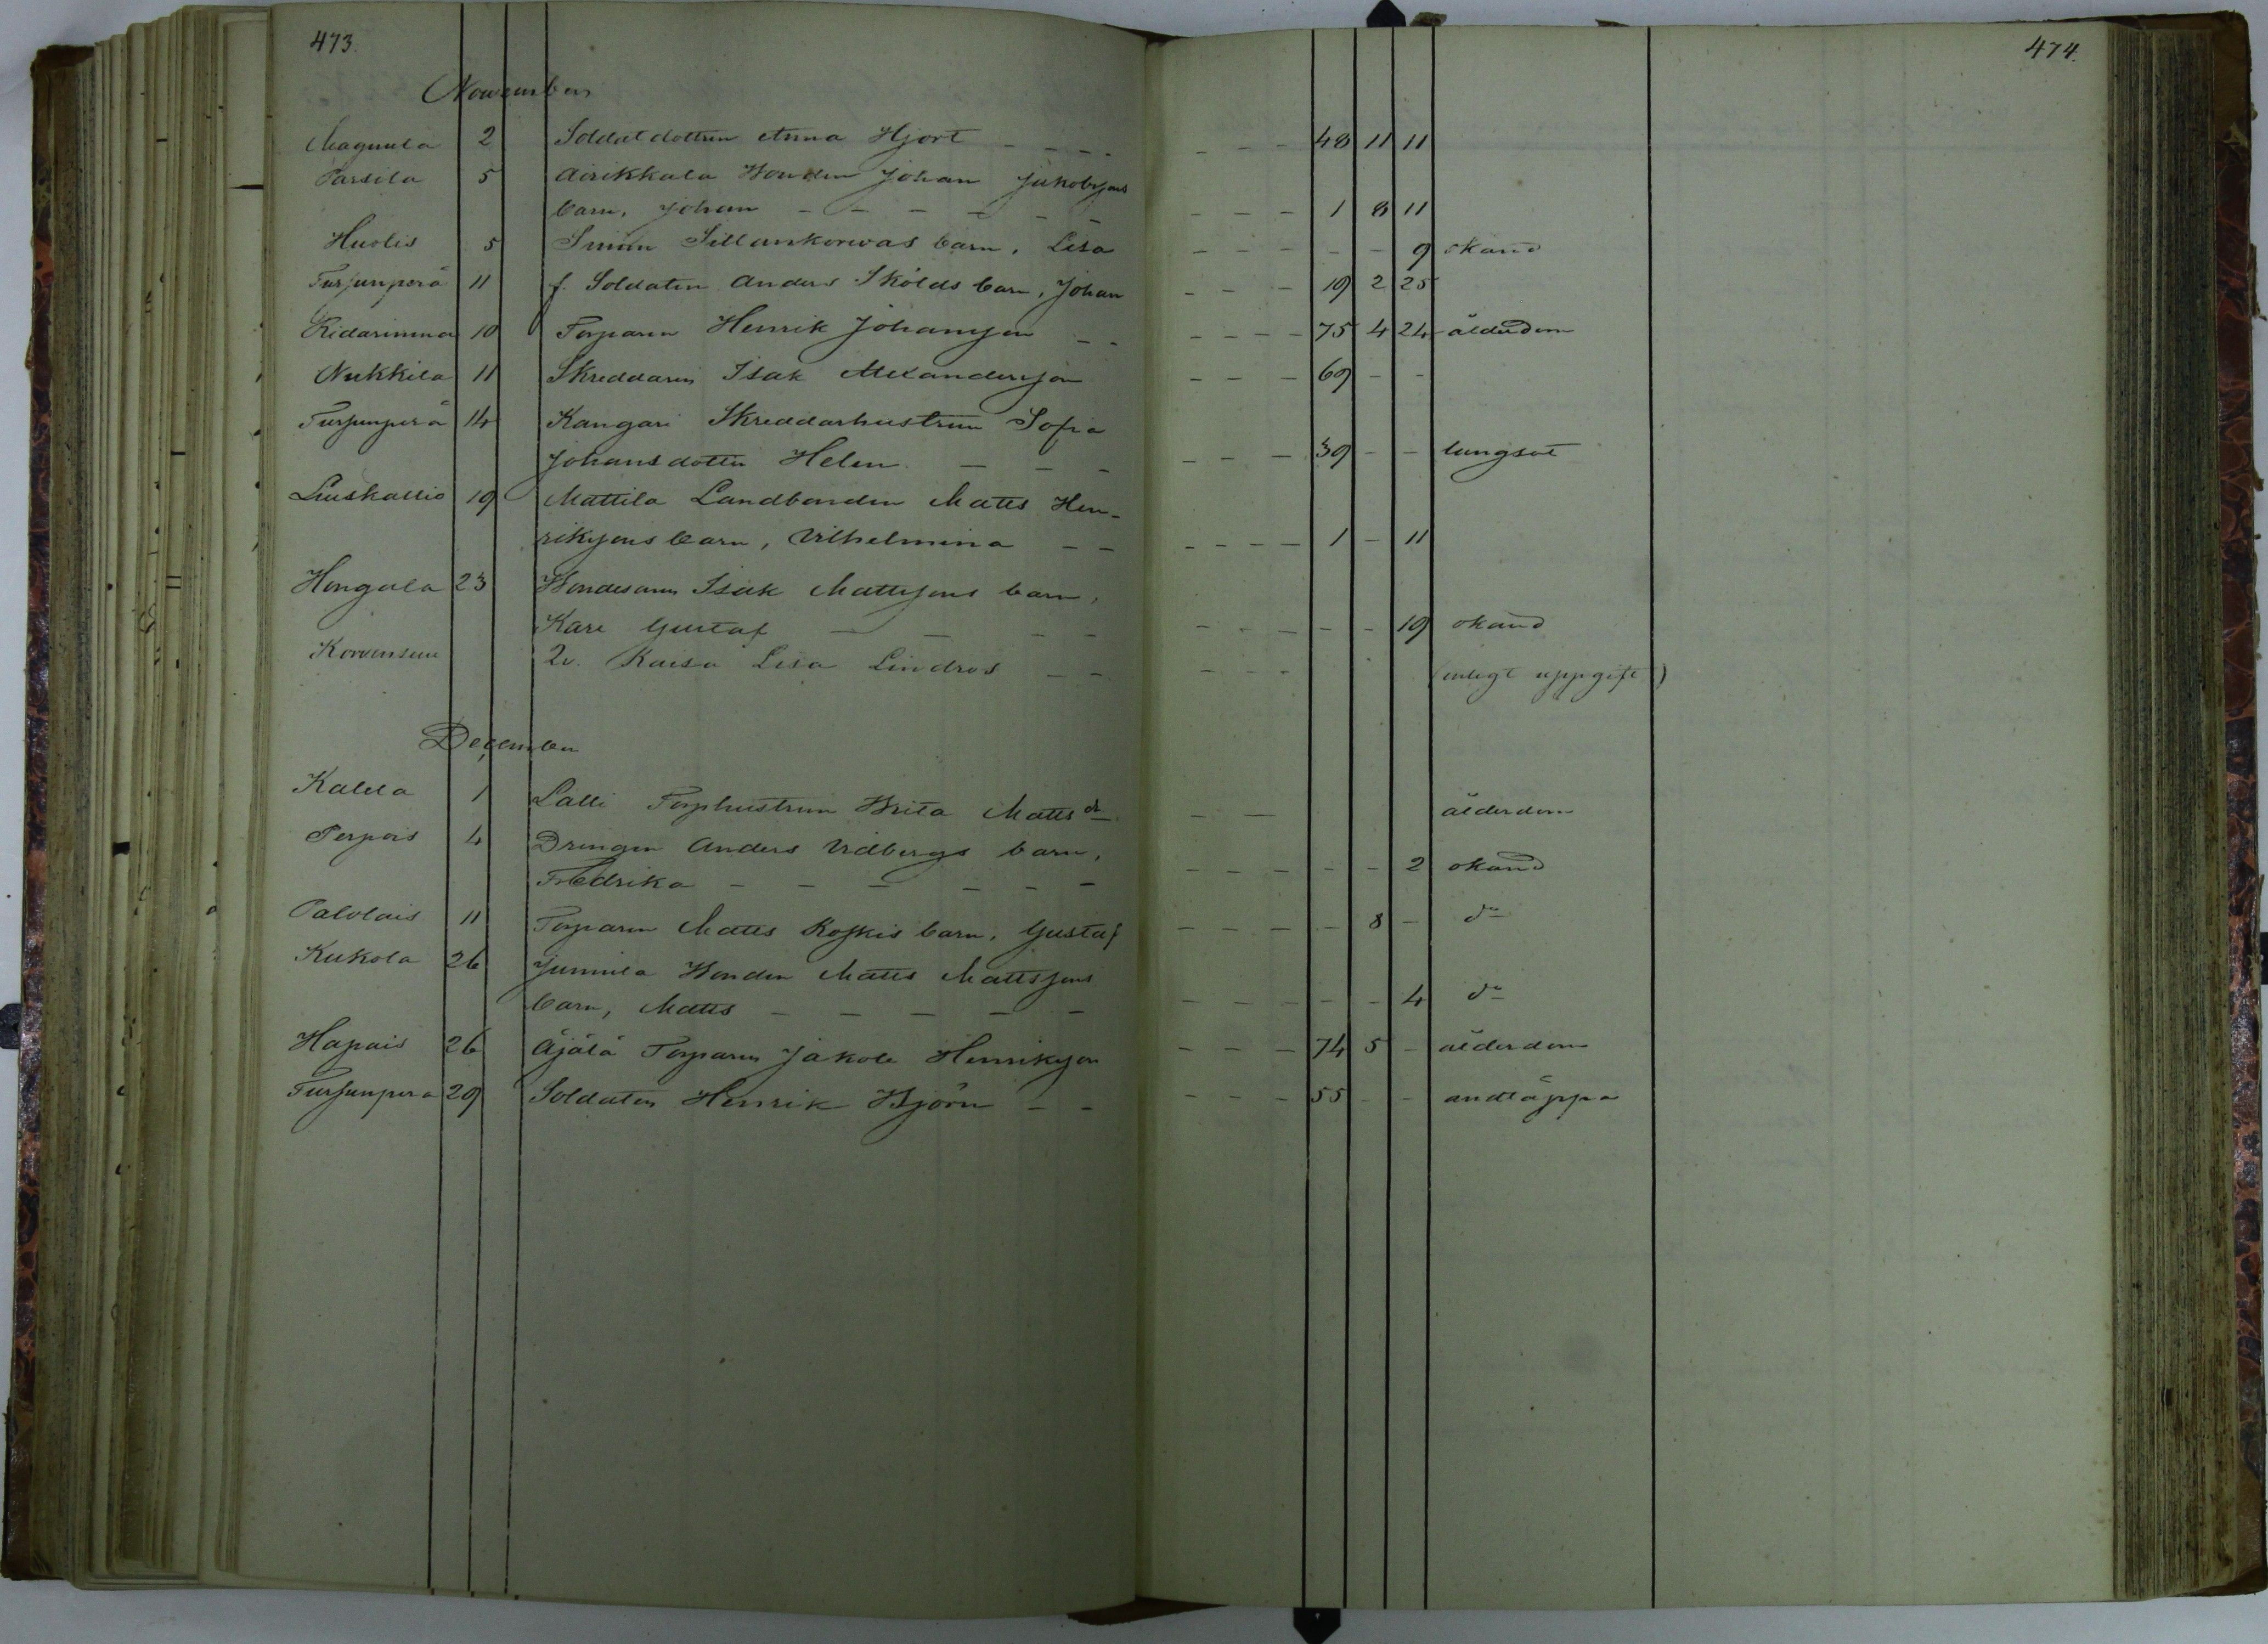 473.
474.
November
Magnula 2 Soldatdottren Anna Hjort - - - - - - - 48 11 11
Parsila 5 Airikkala Bonden Johan Jakobssons
barn, Johan - - - - - - - - - 1 8 11
Huolis 5 Simon Sillankorwas barn, Lisa - - - - - 9 okänd
Tursunperä 11 f. Soldaten Anders Skölds barn, Johan - - - 19 2 25
Kidarinma 10 Torparen Henrik Johansson - - - - - - 75 4 24 ålderdom
Nukkila 11 Skreddaren Isak Alexandersson - - - 69 - -
Tursunperä 14 Kangari Skreddarhustrun Sofia
Johansdotter Helen - - - - - - 39 - - lungsot
Liuskallio 19 Mattila Landbonden Matts Hen-
rikssons barn, Vilhelmina - - - - - - 1 - 11
Hongala 23 Bondesonen Isak Mattssons barn,
Karl Gustaf - - - - - - - - - 19 okänd
Korvensuu Qv. Kaisa Lisa Lindros - - - - - (enligt uppgift)
December
Kalela 1 Lalli Torphustrun Brita Mattsdr - - ålderdom
Perpois 4 Drengen Anders Vidbergs barn,
Fredrika - - - - - - - - - - - 2 okänd
Palolais 11 Torparen Matts Koskis barn, Gustaf - - - - 8 - do
Kukola 26 Junnila Bonden Matts Mattssons
barn, Matts - - - - - - - - - - 4 do
Hapais 26 Äjälä Torparen Jakob Henriksson - - - 74 5 - ålderdom
Tursunperä 29 Soldaten Henrik Björn - - - - - 55 - - andtäppa